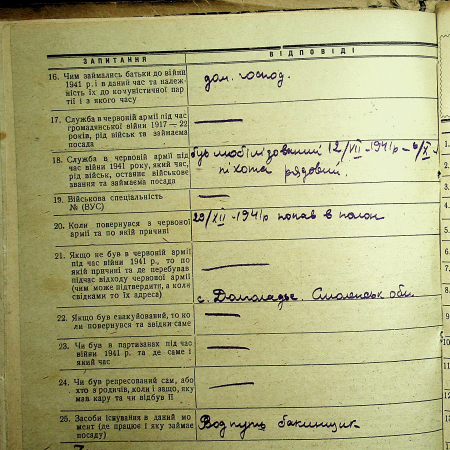 ЗАПИТАННЯ
ВІДПОВІДІ
16. Чим займались батьки до війни
1941 р. і в даний час та належ-
ність їх до комуністичної пар-
тії і з якого часу
дом. господ.
17. Служба в червоній армії під час
громадянської війни 1917 — 22
років, рід військ та займаєма
посада
18. Служба в червоній армії під
час війни 1941 року, який час,
рід військ, останнє військове
звання та займаєма посада
був мобілізований 12/VII - 1941р - 6/X
піхота рядовий.
19. Військова спеціальність
№ (ВУС)
20. Коли повернувся з червоної
армії та по якій причині
1941р попав в полон
21. Якщо не був в червоній армії
під час війни 1941 р., то по
якій причині та де перебував
підчас відходу червоної армії
(чим може підтвердити, а коли
свідками то їх адреса)
с. Смоленськ обл.
22. Якщо був евакуйований, то ко-
ли повернувся та звідки саме
23. Чи був в партизанах під час
війни 1941 р. та де саме і
який час
24. Чи був репресований сам, або
хто з родичів, коли і защо, яку
мав кару та чи відбув її
25. Засоби існування в даний мо-
мент (де працює і яку займає
посаду)
Вод путь бакинщик